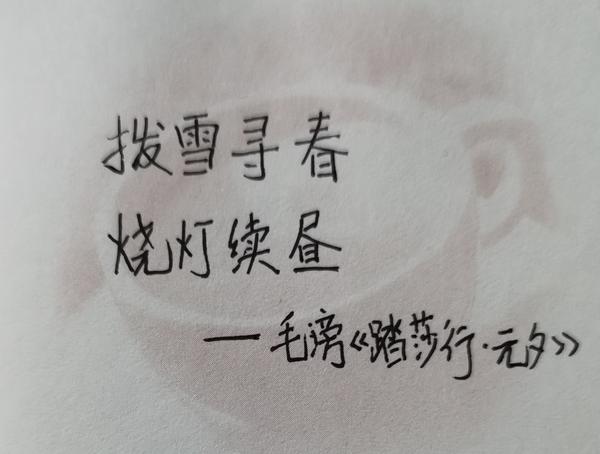 拨雪寻春
烧灯续昼
——毛滂《踏莎行·元夕》